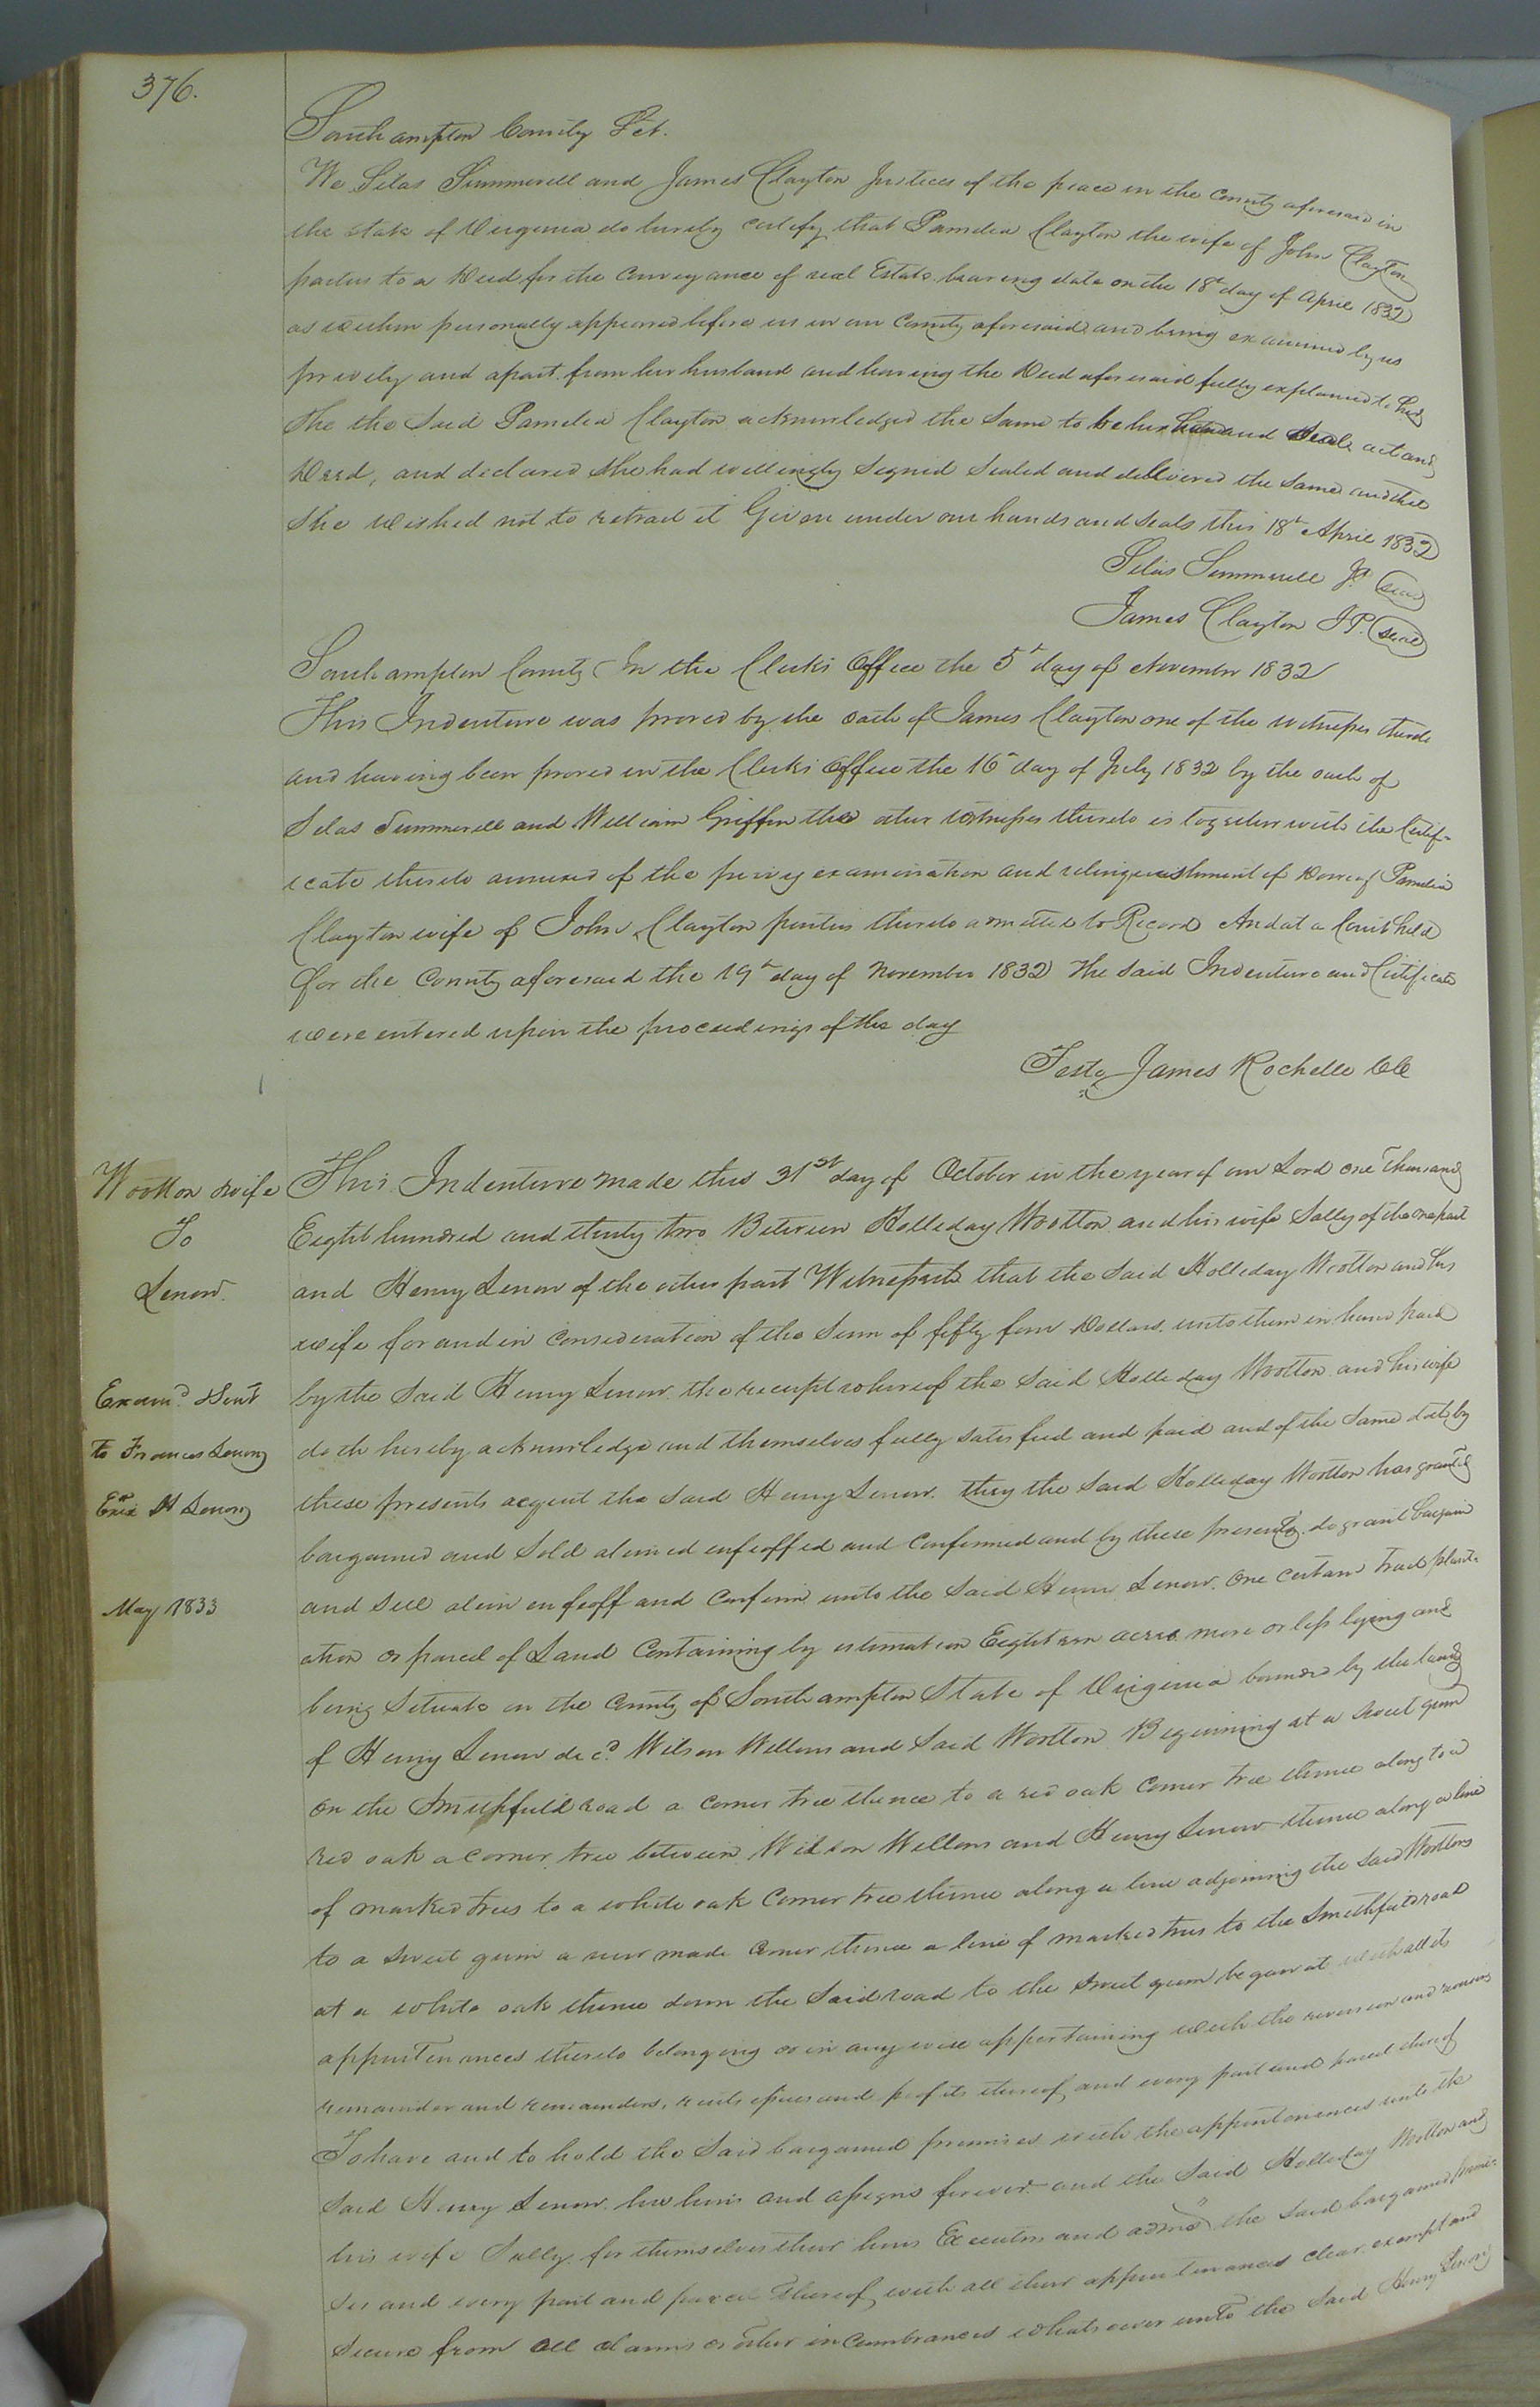 376.
Southampton County Sct.
We Silas Summerell and James Clayton Justices of the peace in the County aforesaid in
the state of Virginia do hereby certify that Pamelia Clayton the wife of John Clayton
parties to a Deed for the Conveyance of real Estate bearing date on the 18th day of April 1832
as within personally appeared before us in our County aforesaid and being examined by us
privily and apart from her husband and having the Deed aforesaid fully explained to her
She the Said Pamelia Clayton acknowledged the Same to be her hand and Seal act and
Deed, and declared She had willingly Signed Sealed and delivered the Same and that
She wished not to retract it Given under our hands and Seals this 18th April 1832
Silas Summerell JP (seal)
James Clayton JP. (seal)
Southampton County In the Clerks Office the 5th day of November 1832
This Indenture was proved by the oath of James Clayton one of the witnesses thereto
and having been proved in the Clerks Office the 16th day of July 1832 by the oath of
Silas Summerell and William Griffin the other witnesses thereto is together with the Certif-
icate thereto annexed of the privy examination and relinquishment of Dower of Pamelia
Clayton wife of John Clayton parties thereto admitted to Record And at a Court held
for the County aforesaid the 19th day of November 1832 The Said Indenture and Certificate
were entered upon the proceedings of the day
Teste James Rochelle CC
Wootton &wife
To
Lenow.
Examd. &Sent
to Frances Lenow
Exix H Lenow
May 1833
This Indenture made this 31st day of October in the year of our Lord one Thousand
Eight hundred and thirty two Between Holleday Wootton and his wife Sally of the one part
and Henry Lenow of the other part Witnesseth that the Said Holleday Wootton and his
wife for and in Consideration of the Sum of fifty four Dollars unto them in hand paid
by the Said Henry Lenow the receipt whereof the Said Holleday Wootton and his wife
doth hereby acknowledge and themselves fully Satisfied and paid and of the Same doth by
these presents acquit the Said Henry Lenow they the Said Holleday Wootton has granted
bargained and Sold aliened enfeoffed and Confirmed and by these presents do grant bargain
and Sell alien enfeoff and Confirm unto the Said Henry Lenow One Certain Tract plant-
ation or parcel of Land Containing by estimation Eighteen acres more or less lying and
being Situate in the County of Southampton State of Virginia bounded by the lands
of Henry Lenow decd. Wilson Wellons and Said Wootton Beginning at a Sweet gum
on the Smithfield road a Corner tree thence to a red oak Corner tree thence along to a
red oak a Corner tree between Wilson Wellons and Henry Lenow thence along a line
of marked trees to a white oak Corner tree thence along a line adjoining the Said Woottons
to a Sweet gum a new made Corner thence a line of marked trees to the Smithfield road
at a white oak thence down the Said road to the Sweet gum began at with all its
appurtenances thereto belonging or in any wise appertaining with the reversion and reversions
remainder and remainders, rents issues and profits thereof and every part and parcel thereof
To have and to hold the Said bargained premises with the appurtenances unto the
Said Henry Lenow his heirs and assigns forever and the Said Holleday Wootton and
his wife Sally for themselves their heirs Executors and admrs the Said bargained premi-
ses and every part and parcel Thereof with all their appurtenances clear exempt and
Secure from all claims or other incumbrances whatsoever unto the Said Henry Lenow